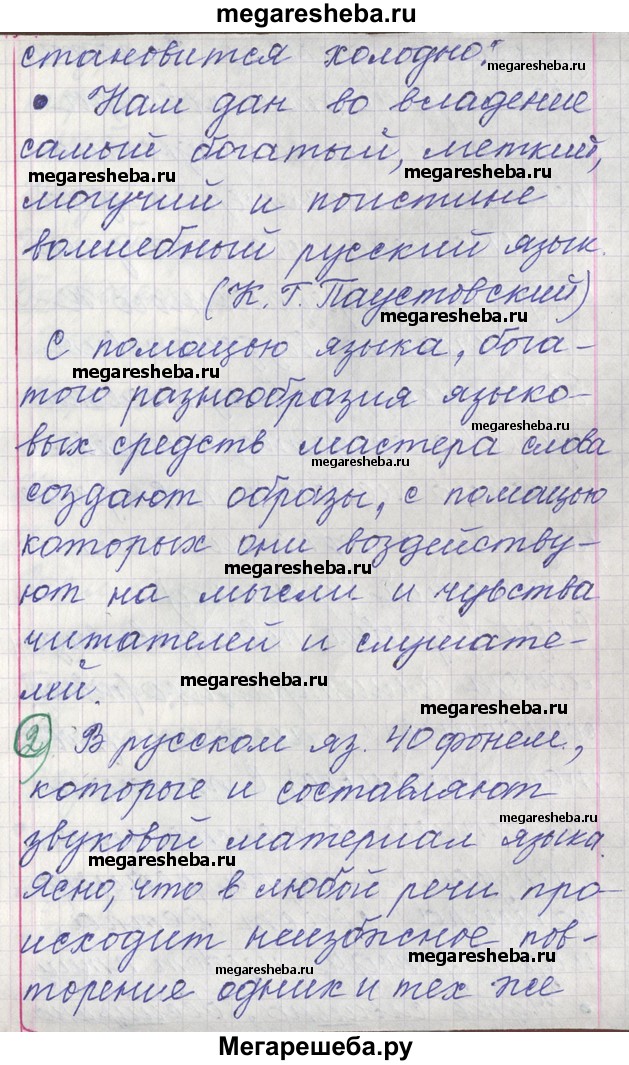 megaresheba.ru
становится холодно!
megaresheba.ru
• Нам дан во владение
megaresheba.ru
самый богатый, меткий,
megaresheba.ru megaresheba.ru
могучий и поистине
волшебный русский язык.
megaresheba.ru
(К. Г. Паустовский)
megaresheba.ru
С помощью языка, бога-
megaresheba.ru
того разнообразия языко-
megaresheba.ru
вых средств мастера слова
megaresheba.ru
создают образы, с помощью
которых они воздейству-
megaresheba.ru
ют на мысли и чувства
читателей и слушате-
лей.
megaresheba.ru
2) В русском яз. 40 фонем,
которые и составляют
megaresheba.ru
звуковой материал языка.
megaresheba.ru
Ясно, что в любой речи про-
исходит неизбежное пов-
megaresheba.ru megaresheba.ru
торение одних и тех же
megaresheba.ru
Мегарешеба.ру